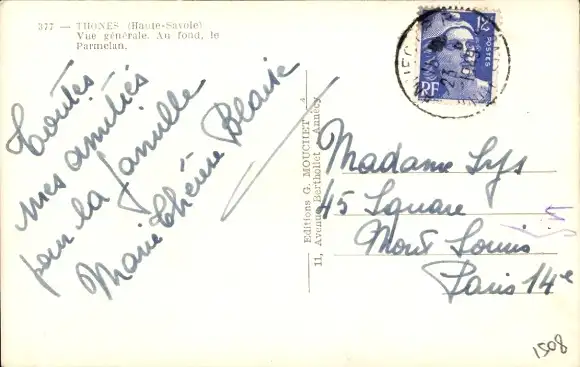 377 — THONES (Haute-Savoie)
Vue générale. Au fond, le
Parmelan.
Toutes
mes amitiés
pour la famille
Marie Thérèse Blaise
Editions G. MOUCHET
11, Avenue Berthollet - Annecy
12F
POSTES
RF
Madame Lys
45 Square
Mont Louris
Paris 14e
1508